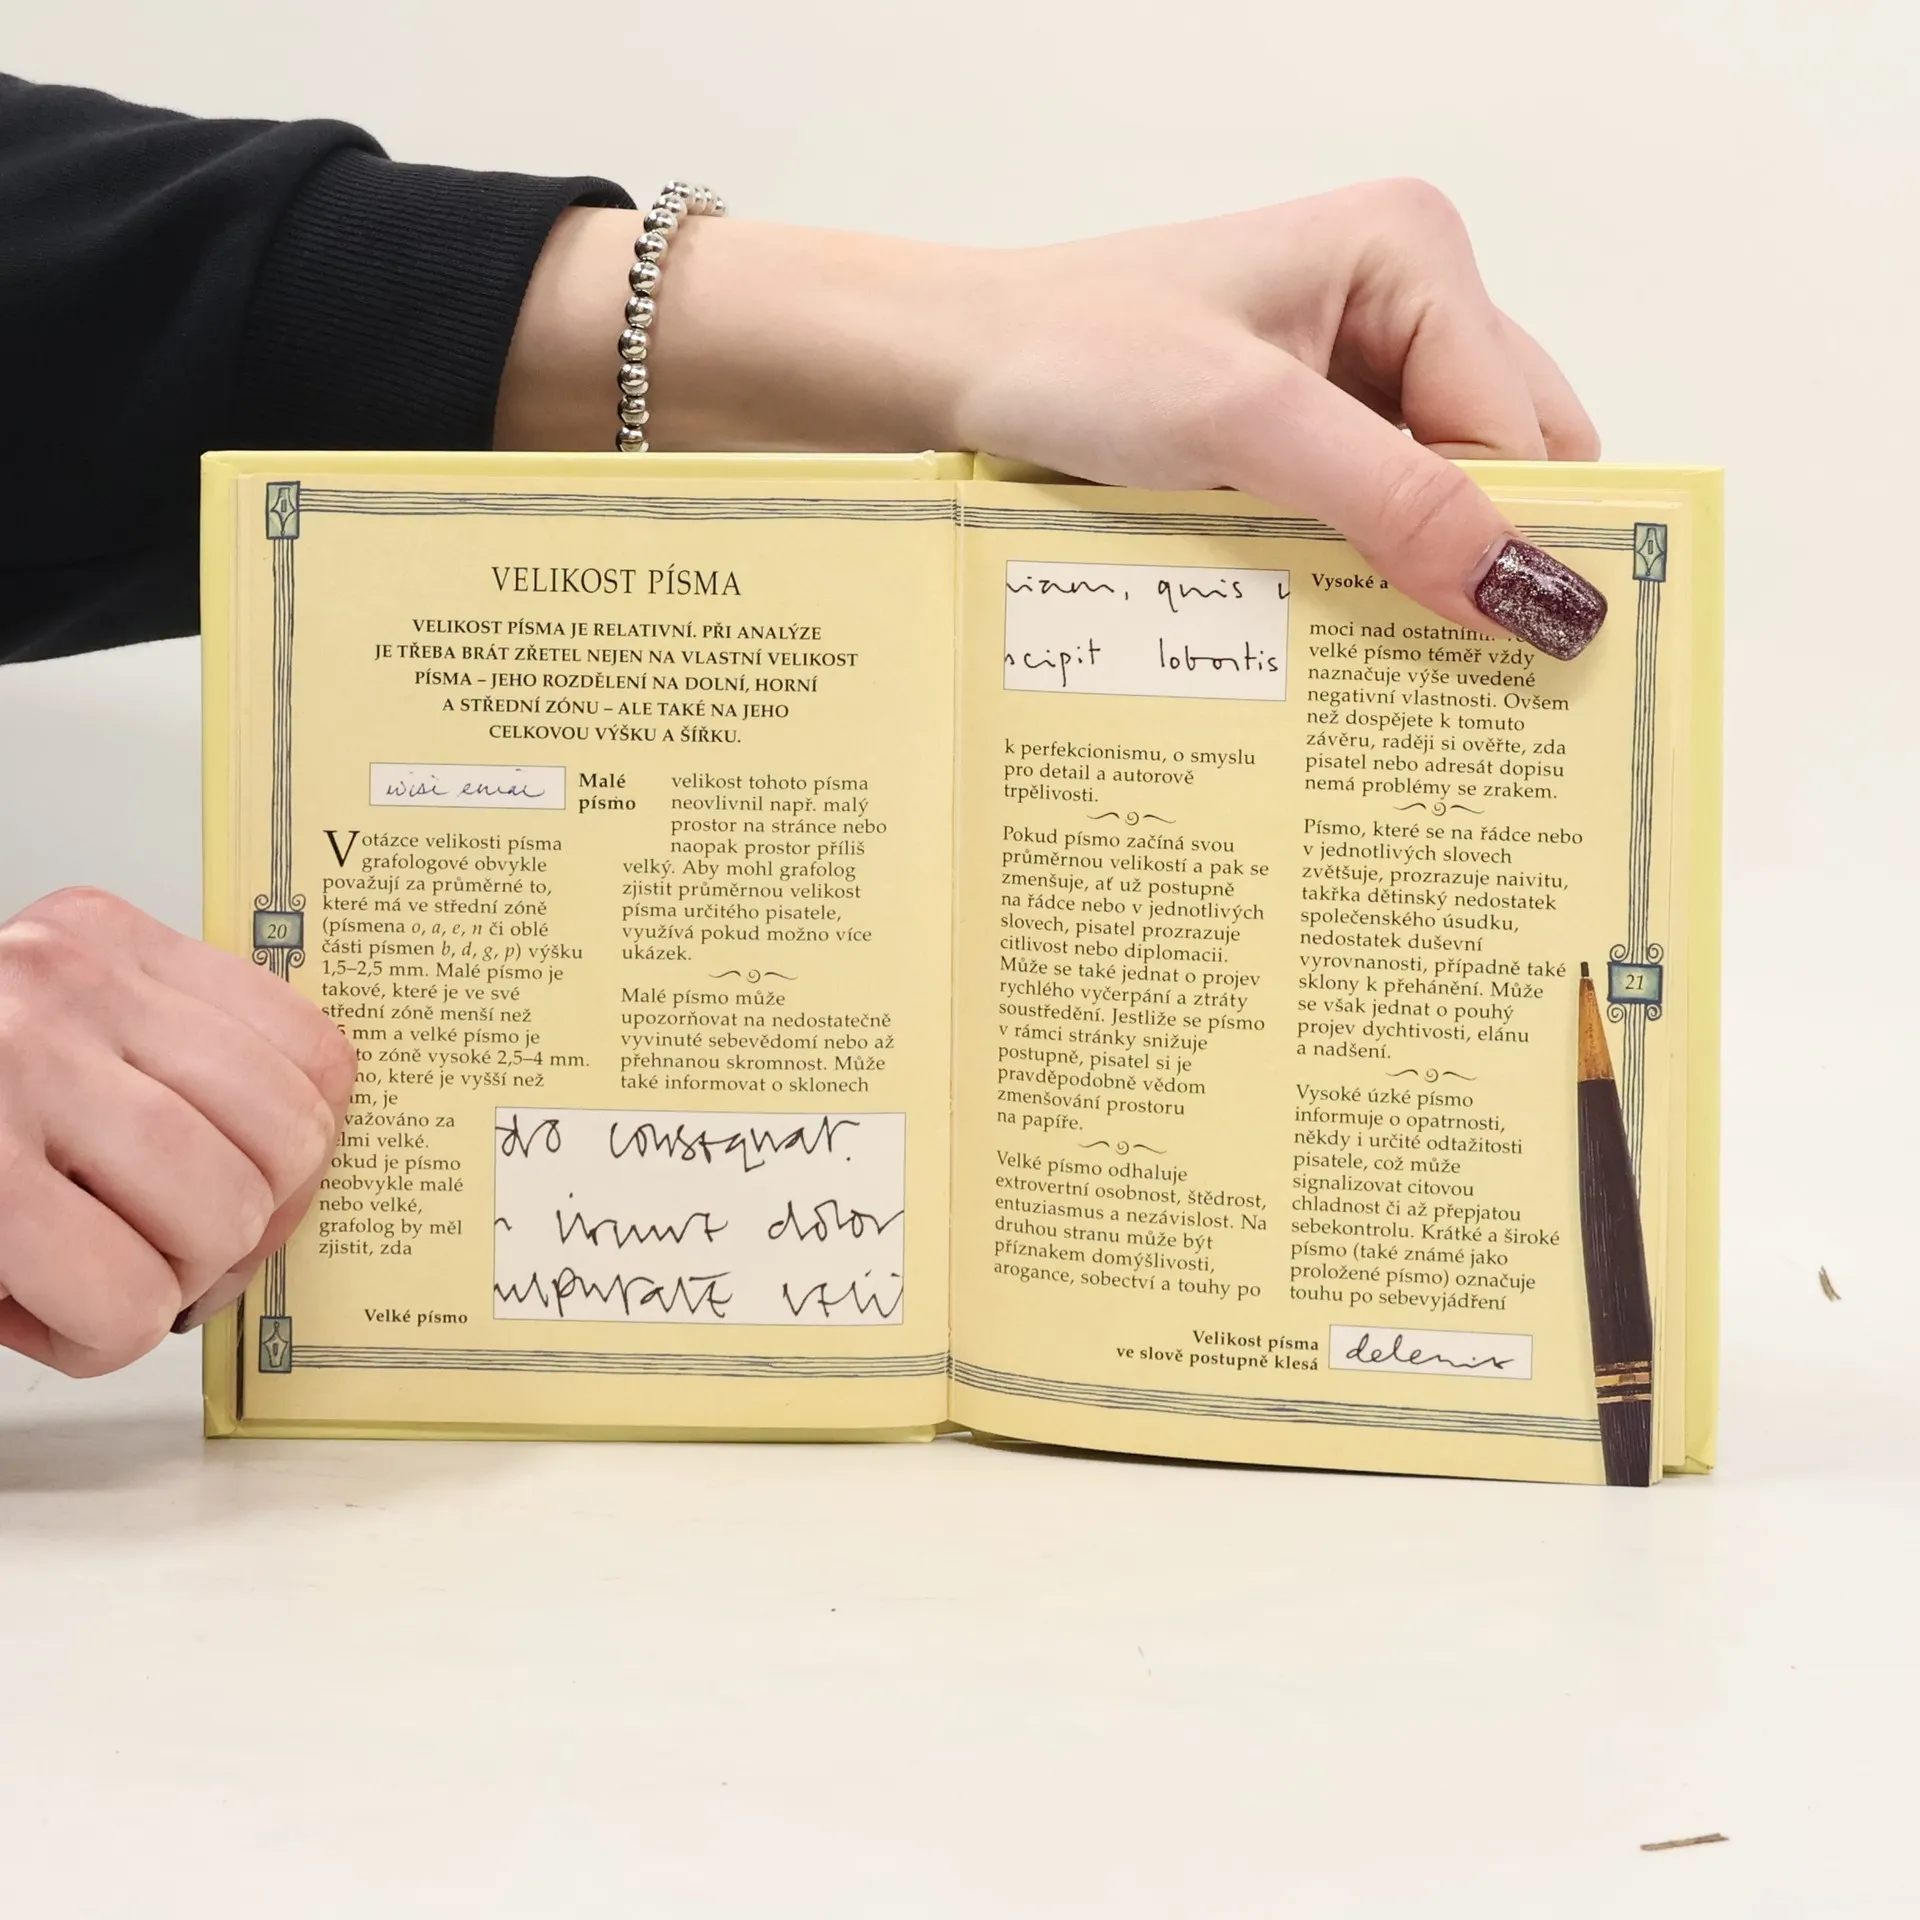 VELIKOST PÍSMA
VELIKOST PÍSMA JE RELATIVNÍ. PŘI ANALÝZE
JE TŘEBA BRÁT ZŘETEL NEJEN NA VLASTNÍ VELIKOST
PÍSMA – JEHO ROZDĚLENÍ NA DOLNÍ, HORNÍ
A STŘEDNÍ ZÓNU – ALE TAKÉ NA JEHO
CELKOVOU VÝŠKU A ŠÍŘKU.
wisi
Malé
písmo
V otázce velikosti písma
grafologové obvykle
považují za průměrné to,
které má ve střední zóně
(písmena o, a, e, n či oblé
části písmen b, d, g, p) výšku
1,5–2,5 mm. Malé písmo je
takové, které je ve své
střední zóně menší než
mm a velké písmo je
zóně vysoké 2,5–4 mm.
které je vyšší než
je
za
velké.
je písmo
neobvykle malé
nebo velké,
grafolog by měl
zjistit, zda
Velké písmo
20
velikost tohoto písma
neovlivnil např. malý
prostor na stránce nebo
naopak prostor příliš
velký. Aby mohl grafolog
zjistit průměrnou velikost
písma určitého pisatele,
využívá pokud možno více
ukázek.
Malé písmo může
upozorňovat na nedostatečně
vyvinuté sebevědomí nebo až
přehnanou skromnost. Může
také informovat o sklonech
consequat.
dolor
quis
lobortis
k perfekcionismu, o smyslu
pro detail a autorově
trpělivosti.
Pokud písmo začíná svou
průměrnou velikostí a pak se
zmenšuje, ať už postupně
na řádce nebo v jednotlivých
slovech, pisatel prozrazuje
citlivost nebo diplomacii.
Může se také jednat o projev
rychlého vyčerpání a ztráty
soustředění. Jestliže se písmo
v rámci stránky snižuje
postupně, pisatel si je
pravděpodobně vědom
zmenšování prostoru
na papíře.
Velké písmo odhaluje
extrovertní osobnost, štědrost,
entuziasmus a nezávislost. Na
druhou stranu může být
příznakem domýšlivosti,
arogance, sobectví a touhy po
Vysoké a
moci nad ostatními.
velké písmo téměř vždy
naznačuje výše uvedené
negativní vlastnosti. Ovšem
než dospějete k tomuto
závěru, raději si ověřte, zda
pisatel nebo adresát dopisu
nemá problémy se zrakem.
Písmo, které se na řádce nebo
v jednotlivých slovech
zvětšuje, prozrazuje naivitu,
takřka dětinský nedostatek
společenského úsudku,
nedostatek duševní
vyrovnanosti, případně také
sklony k přehánění. Může
se však jednat o pouhý
projev dychtivosti, elánu
a nadšení.
Vysoké úzké písmo
informuje o opatrnosti,
někdy i určité odtažitosti
pisatele, což může
signalizovat citovou
chladnost či až přepjatou
sebekontrolu. Krátké a široké
písmo (také známé jako
proložené písmo) označuje
touhu po sebevyjádření
21
Velikost písma
ve slově postupně klesá
delenit